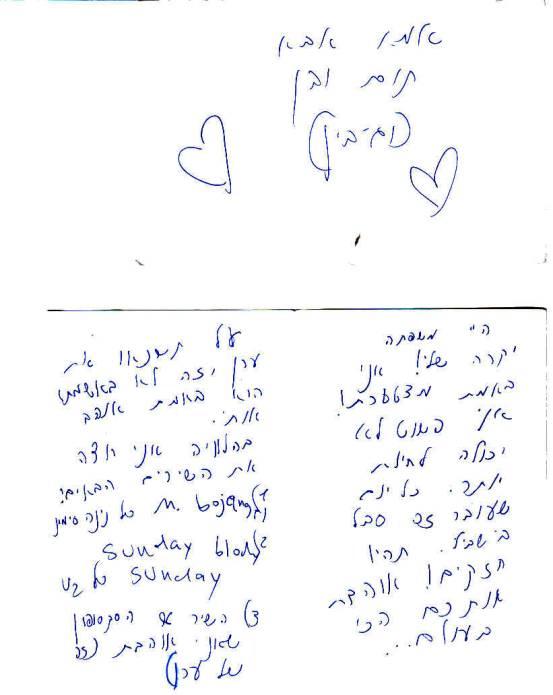 אמא אבא
תום ובן
(וג'יבין)
היי משפחה
יקרה שלי! אני
באמת מצטערת!
אני פשוט לא
יכולה לחיות
יותר. כל יום
שעובר זה סבל
בישביל. תהיו
חזקים! אוהבת
אותכם הכי
בעולם...
על תשנאו את
ערן יזה לא באשמתו
הוא באמת אוהב
אותי.
בהלוויה אני רוצה
את השירים הבאים:
1) M. bojang של נינה סימון
2) Sunday blody
Sunday של U2
3) השיר הסקסופון
שאני אוהבת (זה
של ערן)